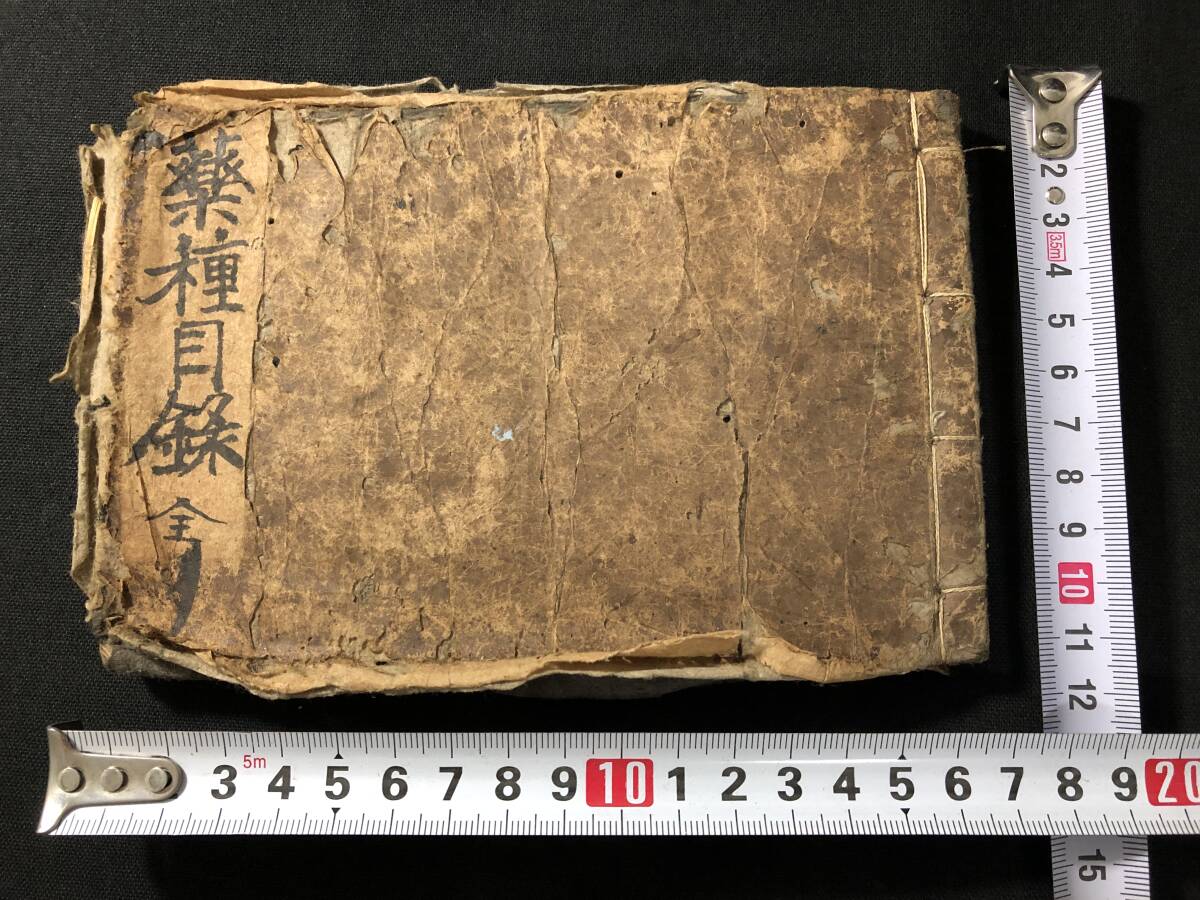 藥種目録 全
2
3
3.5m
4
5
6
7
8
9
10
11
12
15
3 5m 4 5 6 7 8 9 10 1 2 3 4 5 6 7 8 9 20